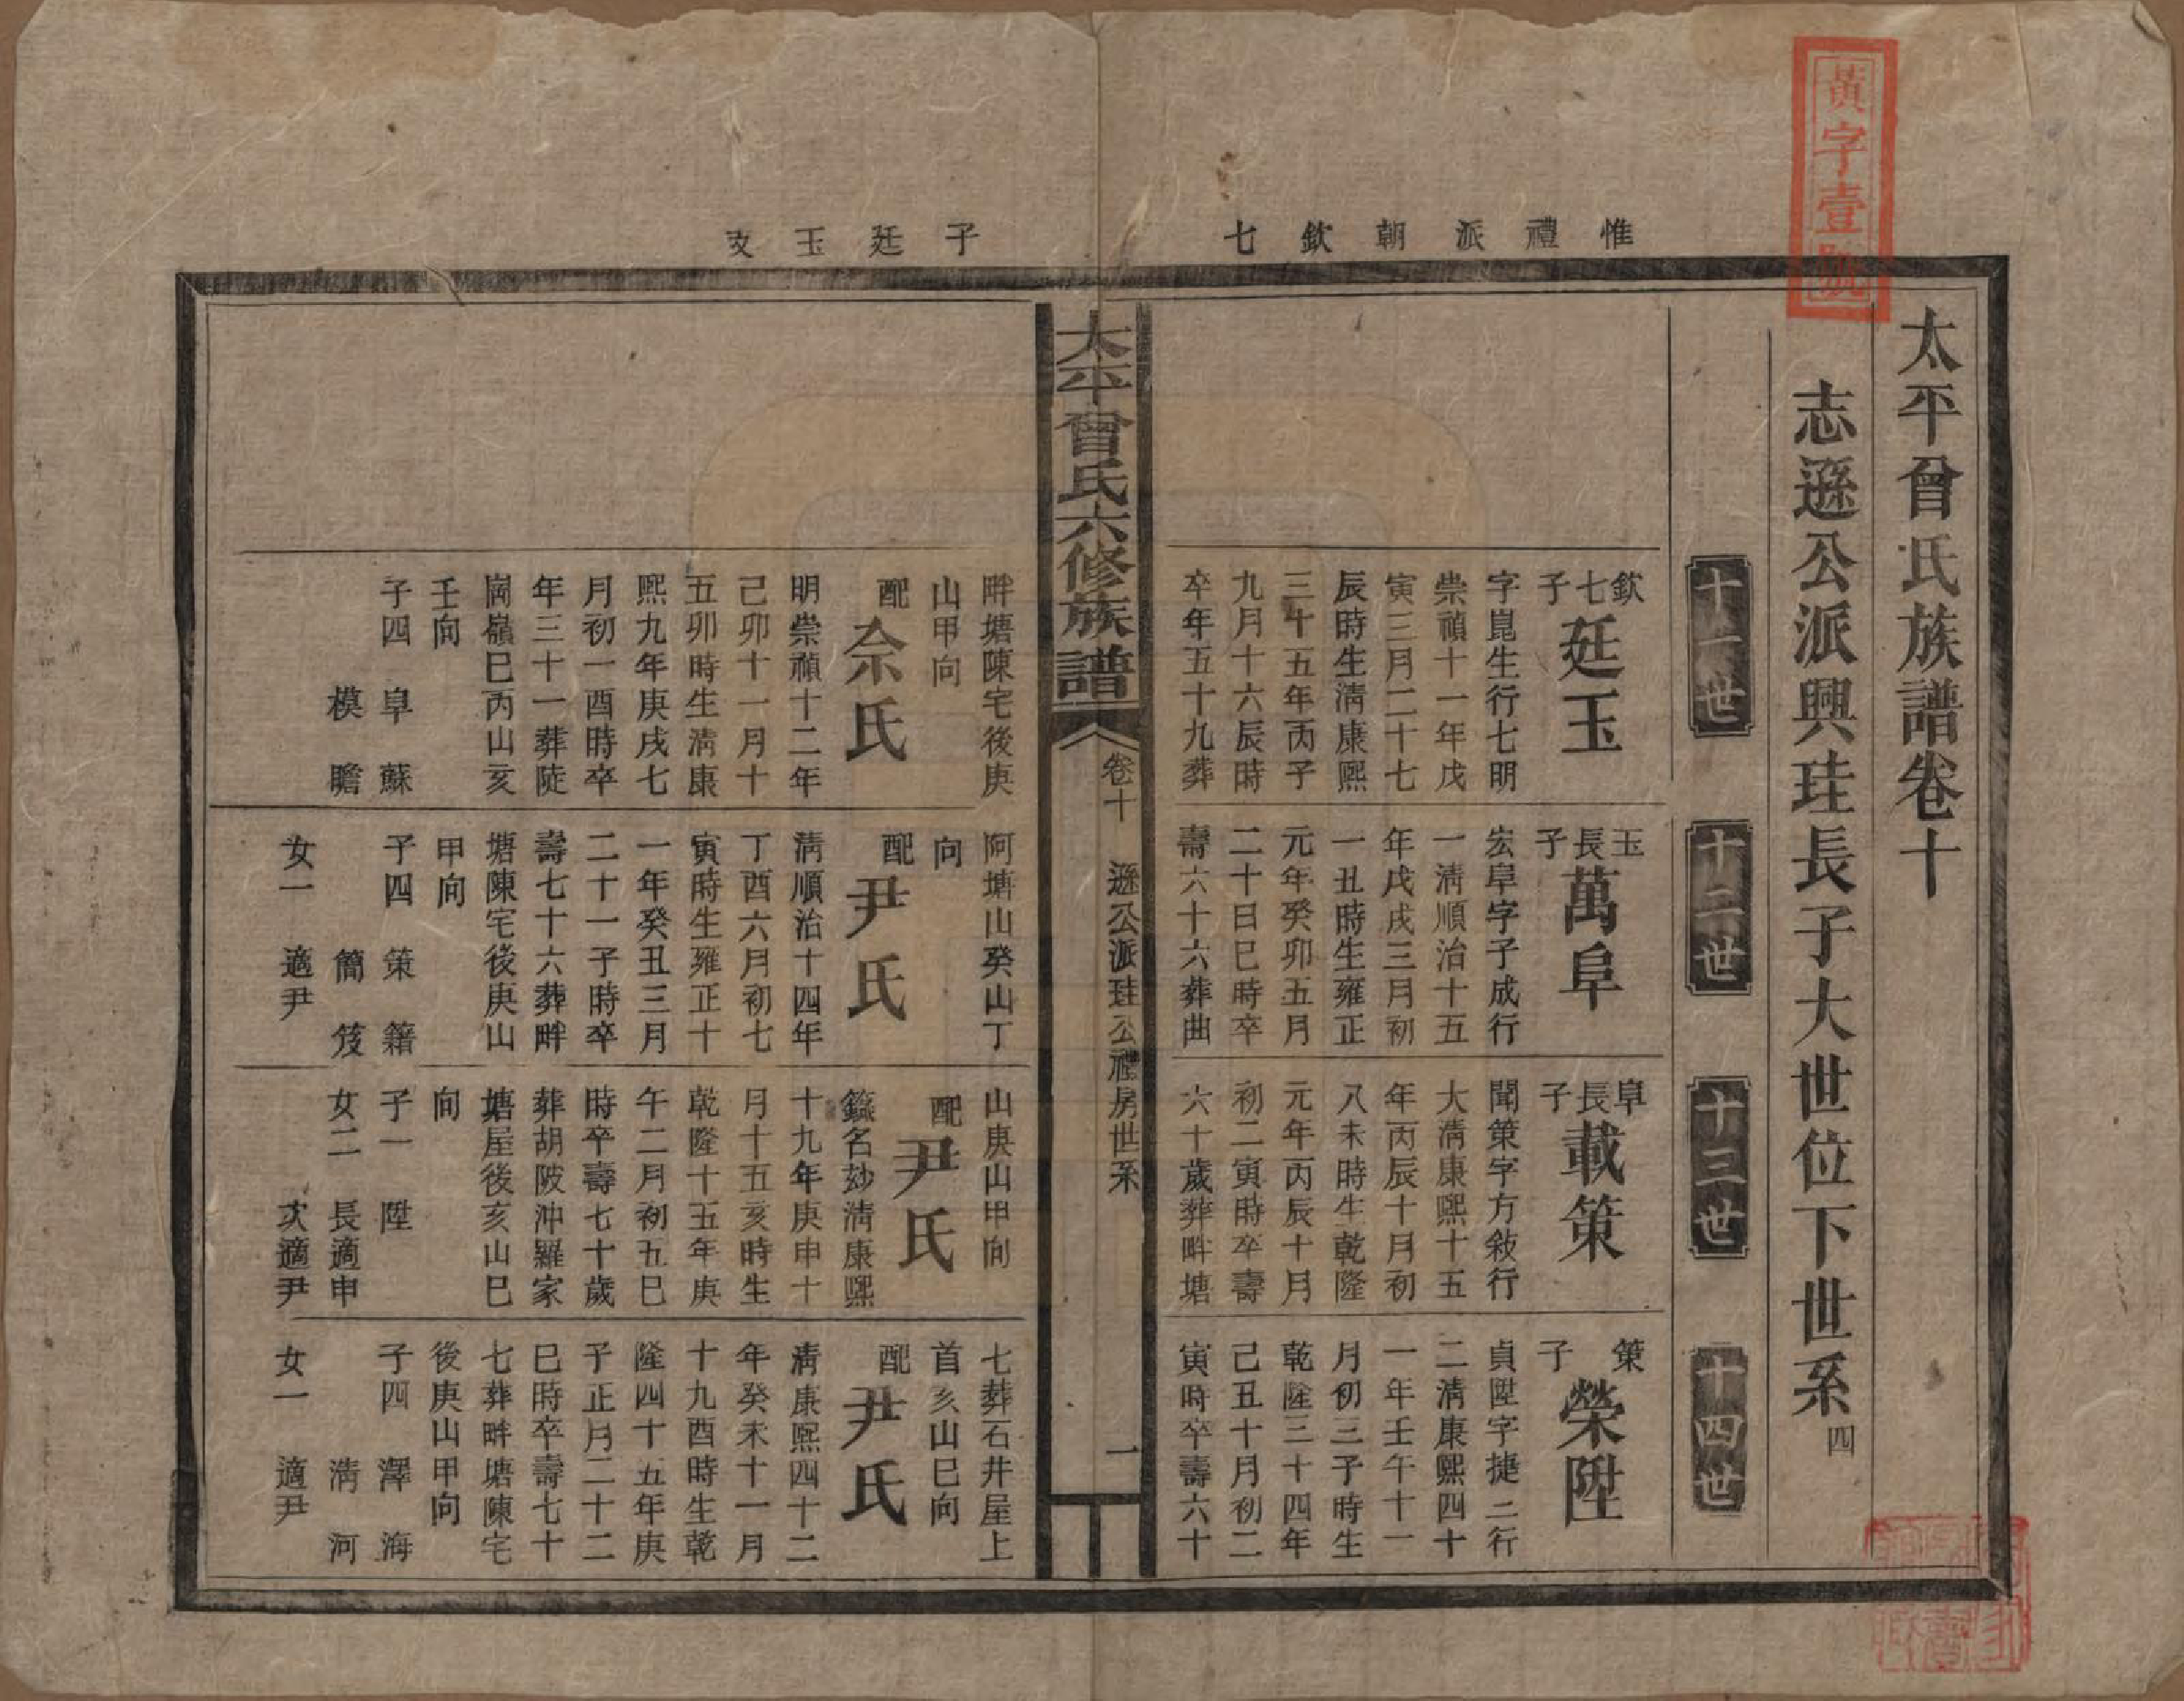 黃字壹號
惟禮派朝欽七
子廷玉支
太平曾氏族譜卷十
志遜公派興珪長子大世位下世系四
十一世
十二世
十三世
十四世
欽七子
廷玉
字崑生行七明
崇禎十一年戊
寅三月二十七
辰時生淸康熙
三十五年丙子
九月十六辰時
卒年五十九葬
畔塘陳宅後庚
山甲向
配
佘氏
明崇禎十二年
己卯十一月十
五卯時生淸康
熙九年庚戌七
月初一酉時卒
年三十一葬陡
崗嶺巳丙山亥
壬向
子四 阜 蘇
模 瞻
玉長子
萬阜
宏阜字子成行
一淸順治十五
年戊戌三月初
一丑時生雍正
元年癸卯五月
二十日巳時卒
壽六十六葬曲
阿塘山癸山丁
向
配
尹氏
淸順治十四年
丁酉六月初七
寅時生雍正十
一年癸丑三月
二十一子時卒
壽七十六葬畔
塘陳宅後庚山
甲向
子四 策 籍
簡 笈
女一 適尹
阜長子
載策
聞策字方敍行
大淸康熙十五
年丙辰十月初
八未時生乾隆
元年丙辰十月
初二寅時卒壽
六十歲葬畔塘
山庚山甲向
配
尹氏
籤名玅淸康熙
十九年庚申十
月十五亥時生
乾隆十五年庚
午二月初五巳
時卒壽七十歲
葬胡陂沖羅家
塘屋後亥山巳
向
子一 陞
女二 長適申
次適尹
策子
榮陞
貞陞字捷二行
二淸康熙四十
一年壬午十一
月初三子時生
乾隆三十四年
己丑十月初二
寅時卒壽六十
七葬石井屋上
首亥山巳向
配
尹氏
淸康熙四十二
年癸未十一月
十九酉時生乾
隆四十五年庚
子正月二十二
巳時卒壽七十
七葬畔塘陳宅
後庚山甲向
子四 澤 海
淸 河
女一 適尹
太平曾氏六修族譜
卷十
遜公派珪公禮房世系
一